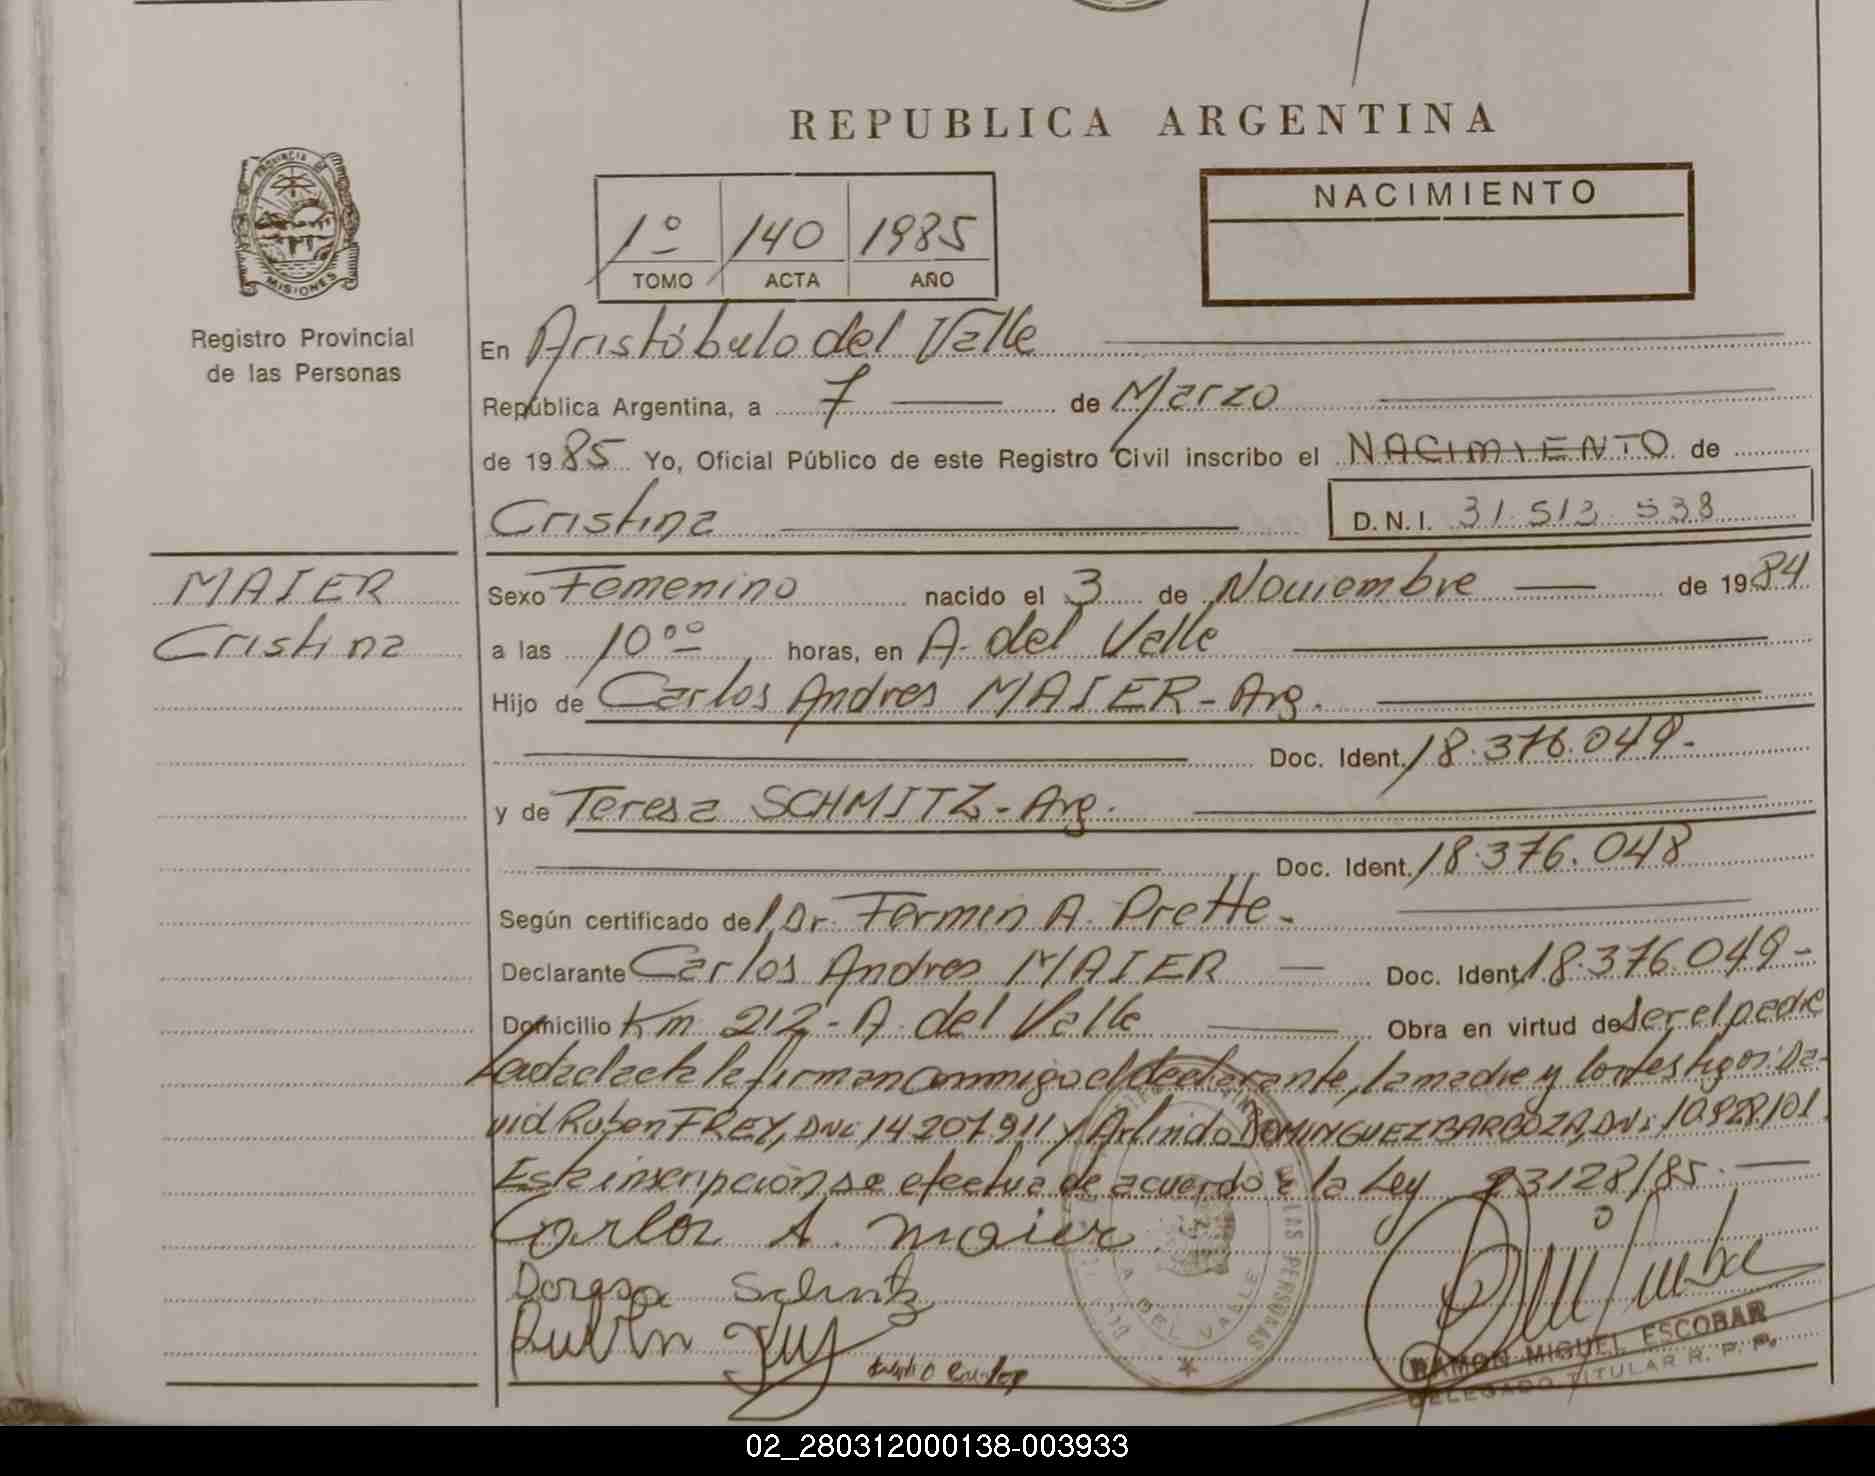 REPUBLICA ARGENTINA
PROVINCIA DE
MISIONES
Registro Provincial
de las Personas
1º 140 1985
TOMO ACTA AÑO
NACIMIENTO
En Aristóbulo del Valle
República Argentina, a 7 de Marzo
de 1985 Yo, Oficial Público de este Registro Civil inscribo el NACIMIENTO de
Cristina D.N.I. 31.513.538
MAIER
Cristina
Sexo Femenino nacido el 3 de Noviembre de 1984
a las 10ºº horas, en A. del Valle
Hijo de Carlos Andres MAIER - Arg.
Doc. Ident. 18.376.049-
y de Teresa SCHMITZ - Arg.
Doc. Ident. 18.376.048
Según certificado del Dr. Fermin A. Prette-
Declarante Carlos Andres MAIER Doc. Ident. 18.376.049-
Domicilio Km 212 - A. del Valle Obra en virtud de ser el padre
Leida el acta la firman conmigo el declarante, la madre y los testigos: Da-
vid Ruben FREY, DNI: 14.207.911 y Arlindo DOMINGUEZ BARBOZA, DNI: 10.928.101.
Esta inscripción se efectua de acuerdo a la Ley 23128/85.
Carlos A. Maier
Schmitz
Ruben Frey
A. DEL VALLE
DE LAS PERSONAS
RAMON MIGUEL ESCOBAR
DELEGADO TITULAR R. P. P.
02_280312000138-003933